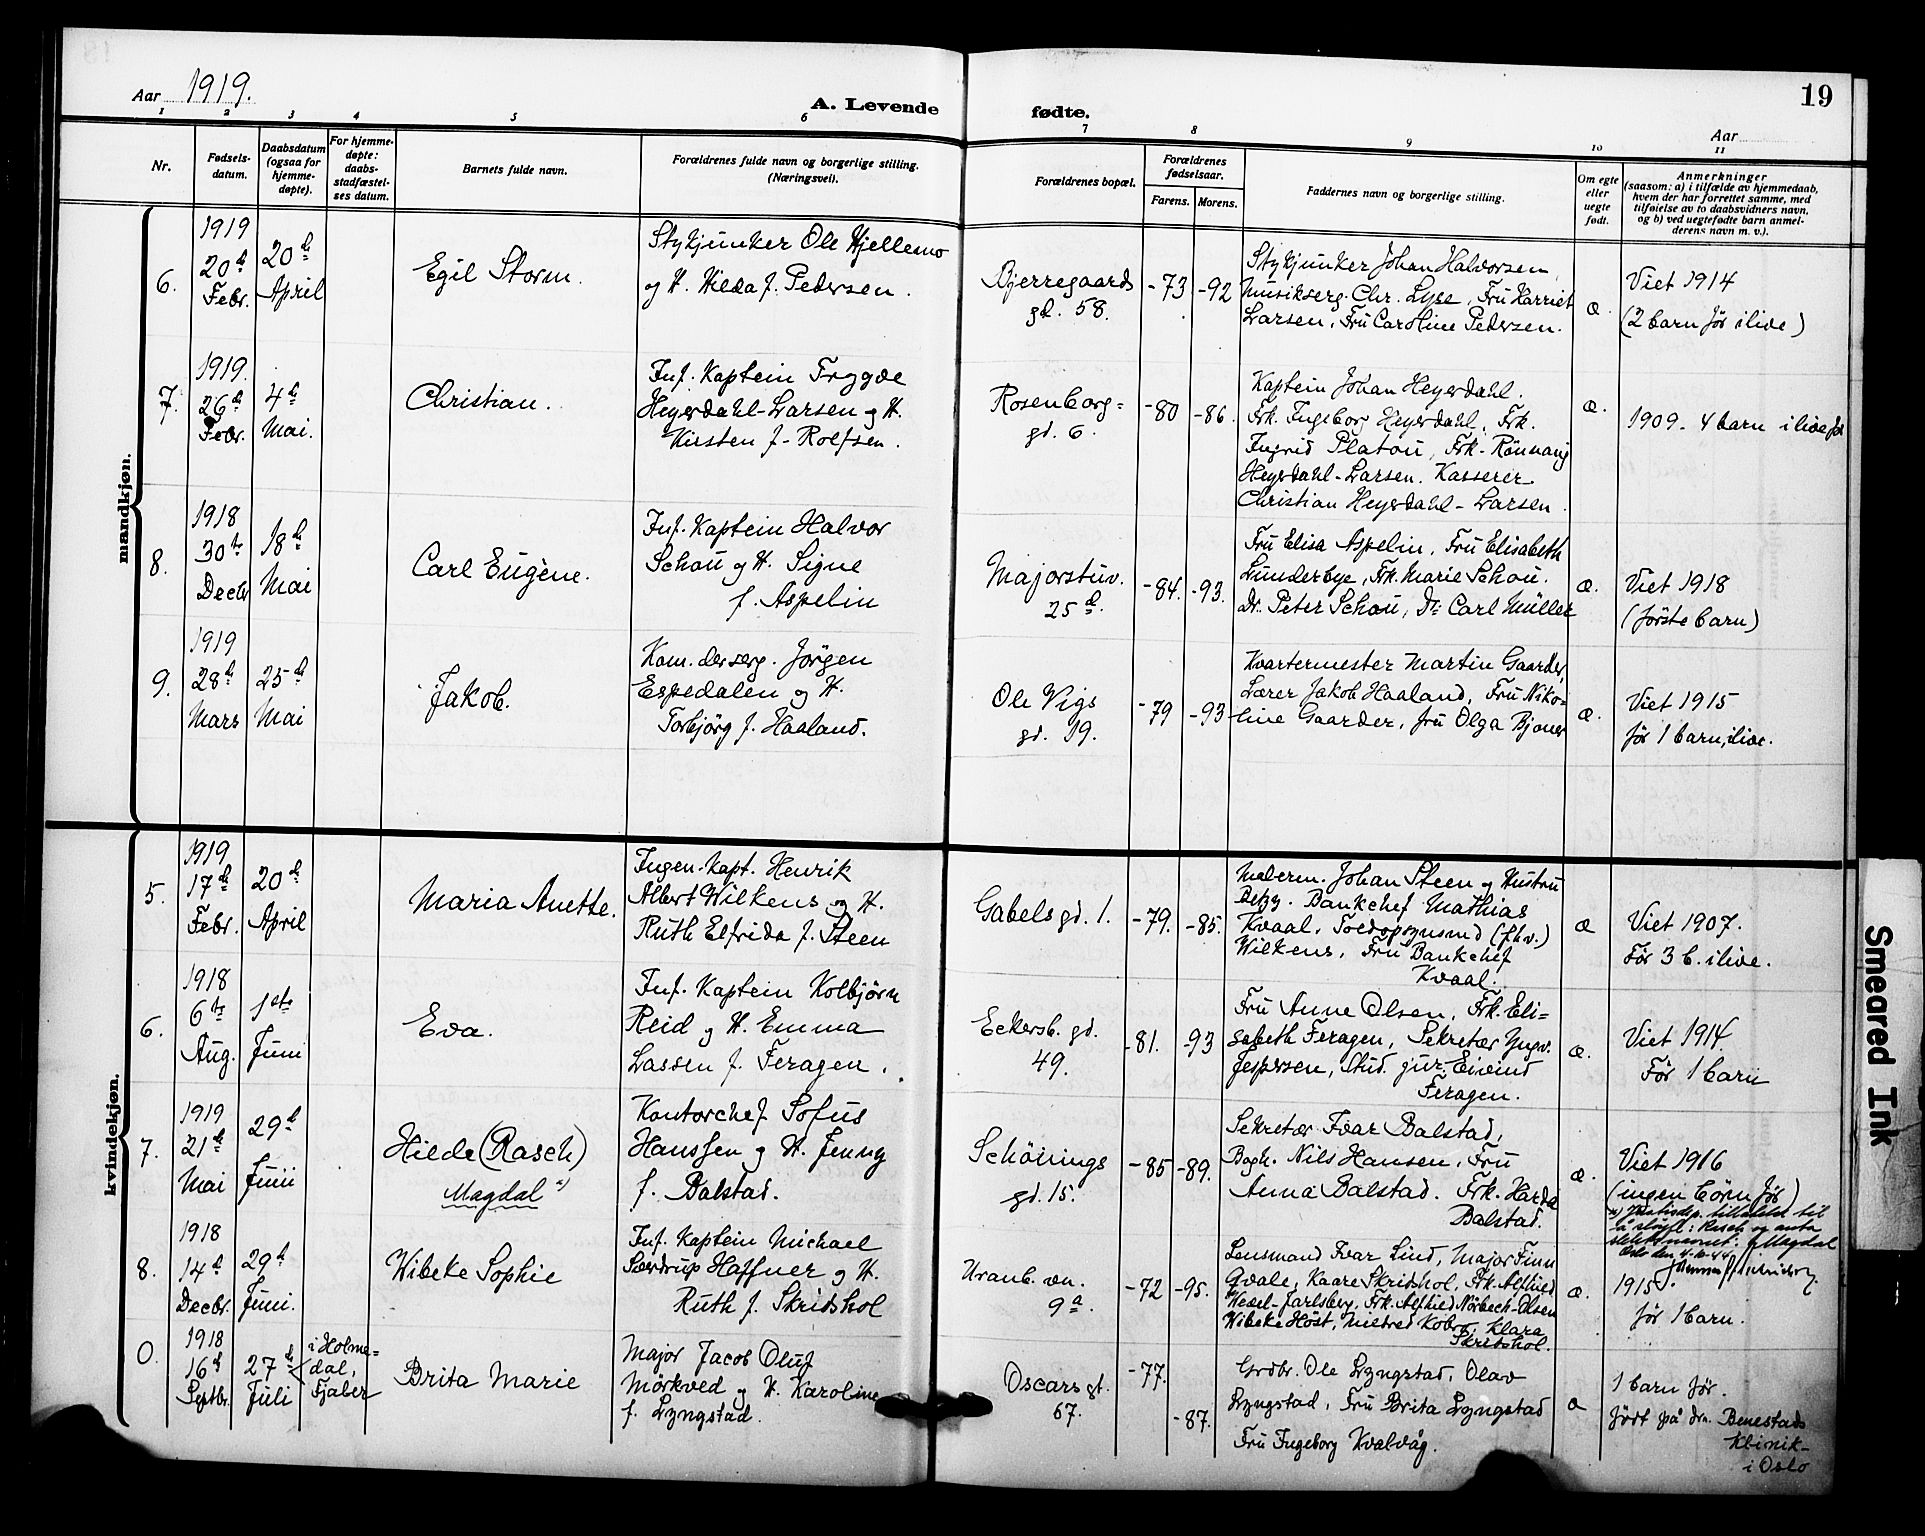 19
Aar 1919.
A. Levende fødte.
Aar
1 2 3 4 5 6 7 8 9 10 11
Nr.
Fødsels-
datum.
Daabsdatum
(ogsaa for
hjemme-
døpte).
For hjemme-
døpte:
daabs-
stadfæstel-
ses datum.
Barnets fulde navn.
Forældrenes fulde navn og borgerlige stilling.
(Næringsvei).
Forældrenes bopæl.
Forældrenes
fødselsaar.
Farens. Morens.
Faddernes navn og borgerlige stilling.
Om egte
eller
uegte
født.
Anmerkninger
(saasom: a) i tilfælde av hjemmedaab,
hvem der har forrettet samme, med
tilføielse av to daabsvidners navn,
og b) ved uegtefødte barn anmel-
derens navn m. v.).
mandkjøn.
6.
1919
20d
Febr.
20d
April
Egil Storm.
Stykjunker Ole Hjellemo
og H. Hilda f. Pedersen.
Bjerregaards
gd. 58.
-73
-92
Stykjunker Johan Halvorsen,
Musikserg. Chr. Lyse, Fru Harriet
Larsen, Fru Caroline Pedersen.
æ.
Viet 1914
(2 barn før ilive)
7.
1919.
26d
Febr.
4d
Mai.
Christian.
Inf. Kaptein Trygve
Heyerdahl-Larsen og H.
Kirsten f. Rolfsen.
Rosenborg=
gd. 6.
-80
-86.
Kaptein Johan Heyerdahl.
Frk. Ingeborg Heyerdahl, Frk.
Ingrid Platou, Frk. Rönnaug
Heyerdahl-Larsen. Kasserer
Christian Heyerdahl-Larsen.
æ.
1909. 4 barn ilive før
8.
1918
30te
Decbr
18d
Mai
Carl Eugène.
Inf. Kaptein Halvor
Schou og H. Signe
f. Aspelin
Majorstuv.
25d.
-84.
-93.
Fru Elisa Aspelin, Fru Elisabeth
Lunderbye, Frk. Marie Schou.
Dr. Peter Schou, Dr. Carl Müller
æ.
Viet 1918
(første barn)
9.
1919
28d
Mars
25d
Mai
Jakob.
Kom. derserg. Jörgen
Espedalen og H.
Torbjörg f. Haaland.
Ole Vigs
gd. 19.
-79
-93
Kvartermester Martin Gaarder,
Lærer Jakob Haaland, Fru Niko-
line Gaarder, fru Olga Bjoner
æ.
Viet 1915
før 1 barn, ilive.
kvindekjøn.
5.
1919
17d
Febr.
20d
April
Maria Anette.
Ingen. Kapt. Henrik
Albert Wilkens og H.
Ruth Elfrida f. Steen
Gabels gd. 1.
-79.
-85.
Malerm. Johan Steen og Hustru
Betzy. Bankchef Mathias
Kvaal, Toldopsynsmd (fhv.)
Wilkens, Fru Bankchef
Kvaal.
æ
Viet 1907.
Før 3 b. ilive.
6.
1918
6te
Aug.
1ste
Juni
Eva.
Inf. Kaptein Kolbjörn
Reid og H. Emma
Lassen f. Feragen.
Eckersb. gd.
49.
-81.
-93
Fru Anne Olsen, Frk. Eli=
sabeth Feragen, Sekretær Yngv.
Jespersen, Stud. jur. Eivind
Feragen.
æ.
Viet 1914.
Før 1 barn
7.
1919
21de
Mai
29d
Juni
Hilde (Rasch)
Magdal x)
Kontorchef Sofus
Hanssen og H. Jenny
f. Balstad.
Schönings
gd. 15.
-85
-89.
Sekretær Ivar Balstad,
Bogh. Nils Hansen, Fru
Anna Balstad. Frk. Harda
Balstad.
æ.
Viet 1916
(ingen børn før)
x) Justisdep. tillatelse til
å sløyfe: Rasch og anta
slektsnavnet: Magdal
Oslo den 4-10-44
8.
1918
14d
Decbr.
29d
Juni.
Wibeke Sophie
Inf. Kaptein Michael
Særdrup Haffner og H.
Ruth f. Skridshol
Uranb. vn.
9a.
-72
-95.
Lensmand Ivar Lind, Major Finn
Qvale, Kaare Skridshol, Frk. Alfhild
Wedel-Jarlsberg, Frk. Alfhild Nörbech-Olsen
Wibeke Höst, Mildred Kobro, Klara
Skridshol.
æ.
1915.
før 1 barn.
0.
1918
16d
Septbr.
27d
Juli
i Holme=
dal,
Fjaler
Brita Marie
Major Jacob Oluf
Mörkved og H. Karoline
f. Lyngstad.
Oscars gt.
67.
-77.
-87.
Grdbr. Ole Lyngstad, Olav
Lyngstad, Fru Brita Lyngstad
Fru Ingeborg Kvalvåg.
æ
1 barn før.
født på dr. Benestads
Klinik-
i Oslo
Smeared Ink